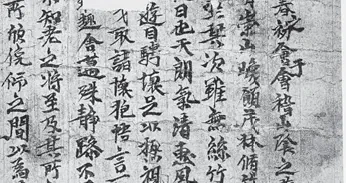 春初會于會稽山陰之
崇山峻嶺茂林脩
其次雖無絲竹
日也天朗氣清惠風
遊目騁懷足以極視
取諸懷抱悟言一
趣舍萬殊靜躁不
知老之將至及其所
所欣俛仰之間以為